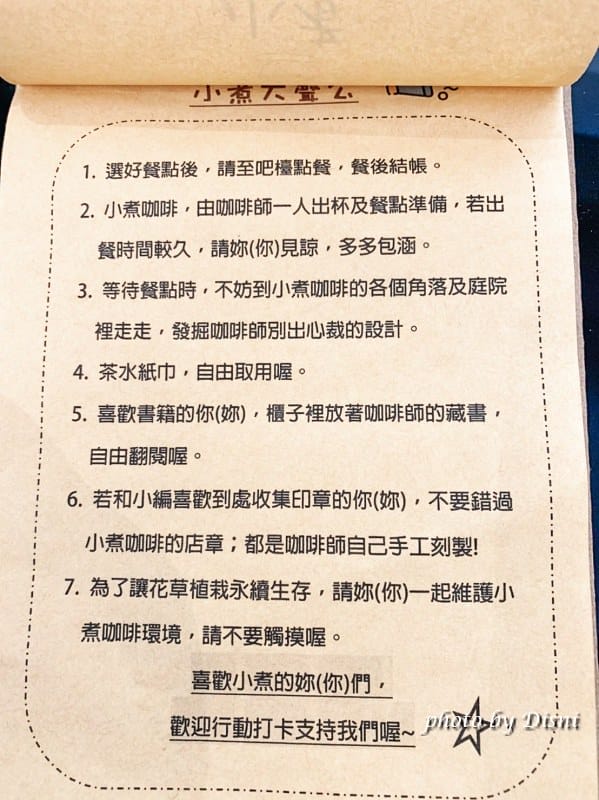 小煮大聲公
1. 選好餐點後，請至吧檯點餐，餐後結帳。
2. 小煮咖啡，由咖啡師一人出杯及餐點準備，若出
餐時間較久，請妳(你)見諒，多多包涵。
3. 等待餐點時，不妨到小煮咖啡的各個角落及庭院
裡走走，發掘咖啡師別出心裁的設計。
4. 茶水紙巾，自由取用喔。
5. 喜歡書籍的你(妳)，櫃子裡放著咖啡師的藏書，
自由翻閱喔。
6. 若和小編喜歡到處收集印章的你(妳)，不要錯過
小煮咖啡的店章；都是咖啡師自己手工刻製!
7. 為了讓花草植栽永續生存，請妳(你)一起維護小
煮咖啡環境，請不要觸摸喔。
喜歡小煮的妳(你)們，
歡迎行動打卡支持我們喔~
photo by Diini